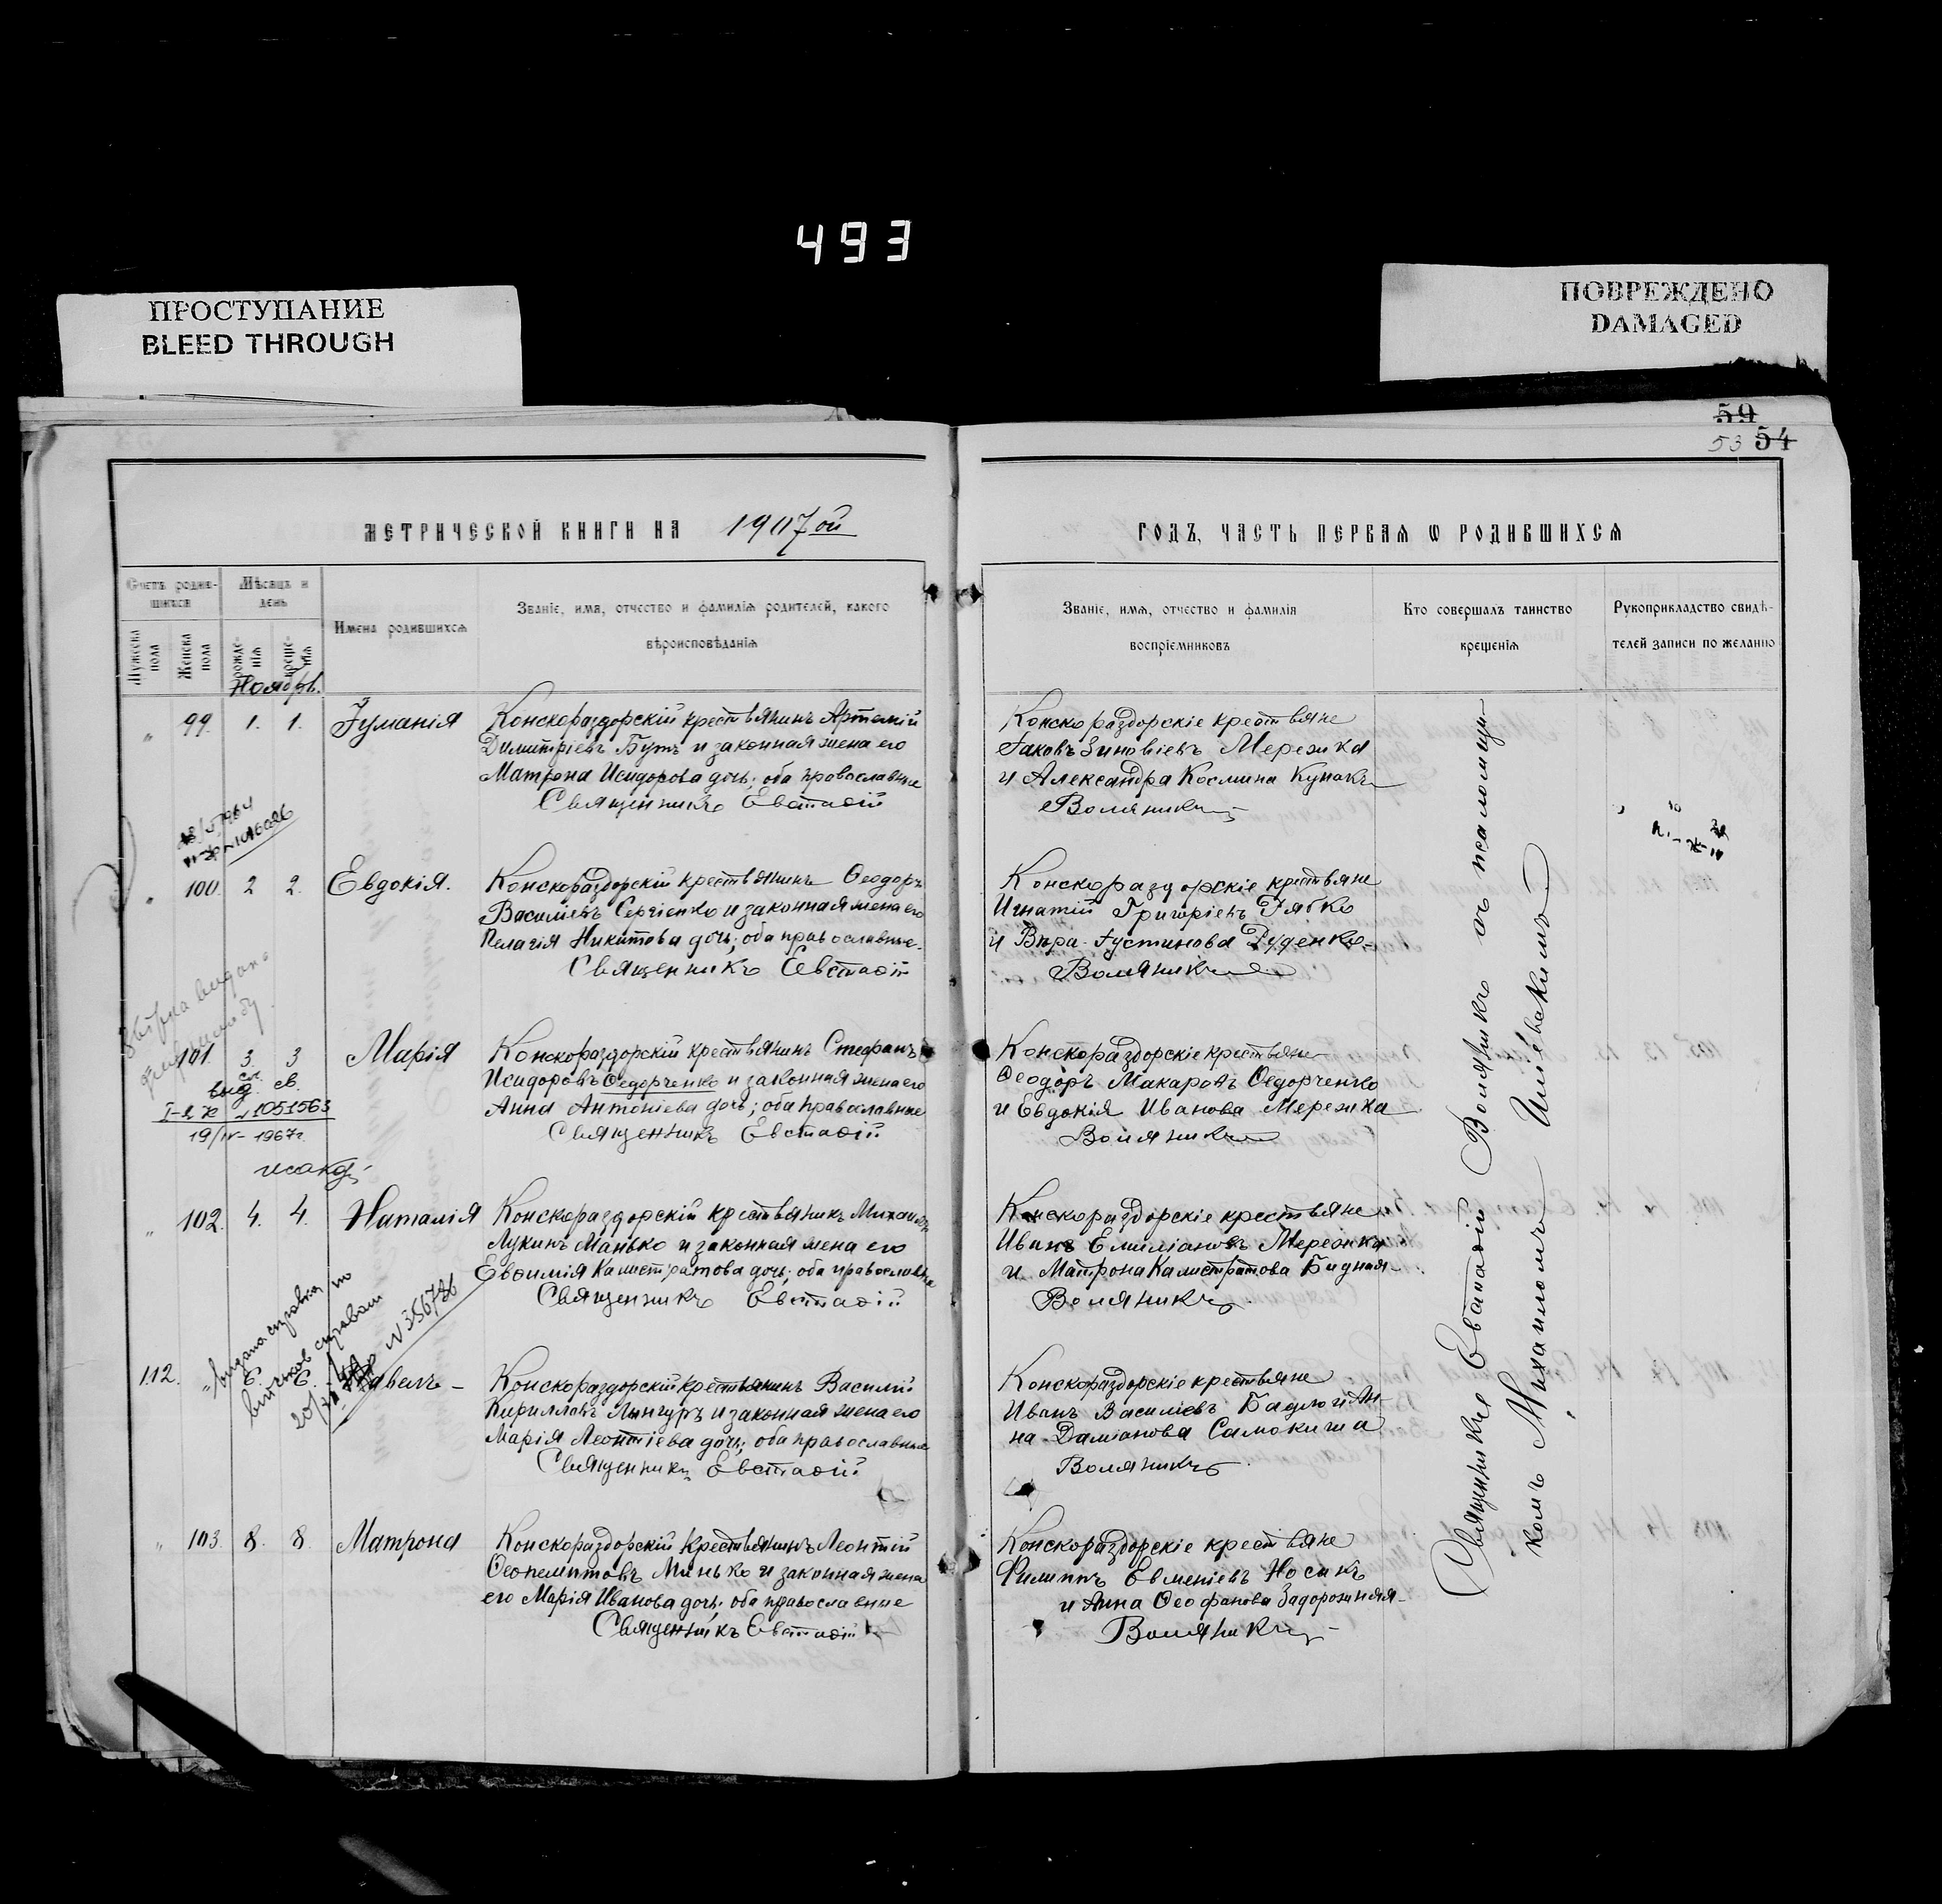 493
ПРОСТУПАНИЕ
BLEED THROUGH
ПОВРЕЖДЕНО
DAMAGED
59
53 54
МЕТРИЧЕСКОЙ КНИГИ НА 1907ой
ГОДЪ, ЧАСТЬ ПЕРВАЯ Ѡ РОДИВШИХСЯ
Счетъ родив-
шихся
Мужеска пола
Женска пола
Мѣсяцъ и
день
рожде-
нія
креще-
нія
Имена родившихся
Званіе, имя, отчество и фамилія родителей, какого
вѣроисповѣданія
Званіе, имя, отчество и фамилія
воспріемниковъ
Кто совершалъ таинство
крещенія
Рукоприкладство свидѣ-
телей записи по желанію
Ноябрь.
„ 99. 1. 1. Іуманія
Конскораздорскій крестьянинъ Артемій
Димитріевъ Бутъ и законная жена его
Матрона Исидорова дочь; оба православные
Священникъ Евстаѳій
Конскораздорскіе крестьяне
Іаковъ Зиновіевъ Мережка
и Александра Космина Кунакъ
Воляникъ
„ 100. 2 2. Евдокія.
Конскораздорскій крестьянинъ Ѳеодоръ
Василіевъ Сергіенко и законная жена его
Пелагія Никитова дочь; оба православные.
Священникъ Евстаѳій
Конскораздорскіе крестьяне
Игнатій Григоріевъ Рябко
и Вѣра Іустинова Дуденко
Воляникъ
101. 3. 3 Марія
Конскораздорскій крестьянинъ Стефанъ
Исидоровъ Ѳедорченко и законная жена его
Анна Антоніева дочь; оба православные
Священникъ Евстаѳій
Конскораздорскіе крестьяне
Ѳеодоръ Макаровъ Ѳедорченко
и Евдокія Иванова Мережка
Воляникъ
выд. св.
1051563
19/IV- 1967г.
„ 102. 4. 4. Наталія
Конскораздорскій крестьянинъ Михаилъ
Лукинъ Манько и законная жена его
Евѳимія Калистратова дочь; оба православные
Священникъ Евстаѳій
Конскораздорскіе крестьяне
Иванъ Емиліановъ Мережка
и Матрона Калистратова Бидная
Воляникъ
N 356736
112. „ 6. 6. Павелъ
Конскораздорскій крестьянинъ Василій
Кирилловъ Лынгуръ и законная жена его
Марія Леонтіева дочь; оба православные
Священникъ Евстаѳій
Конскораздорскіе крестьяне
Иванъ Василіевъ Бадло и Ан-
на Даміанова Самокиша
Воляникъ
„ 103. 8. 8. Матрона
Конскораздорскій крестьянинъ Леонтій
Ѳеопемптовъ Манько и законная жена
его Марія Иванова дочь; оба православные
Священникъ Евстаѳій
Конскораздорскіе крестьяне
Филиппъ Евменіевъ Носикъ
и Анна Ѳеофанова Задорожняя
Воляникъ
Священникъ Евстаѳій Воляникъ съ псаломщи-
комъ Михаиломъ